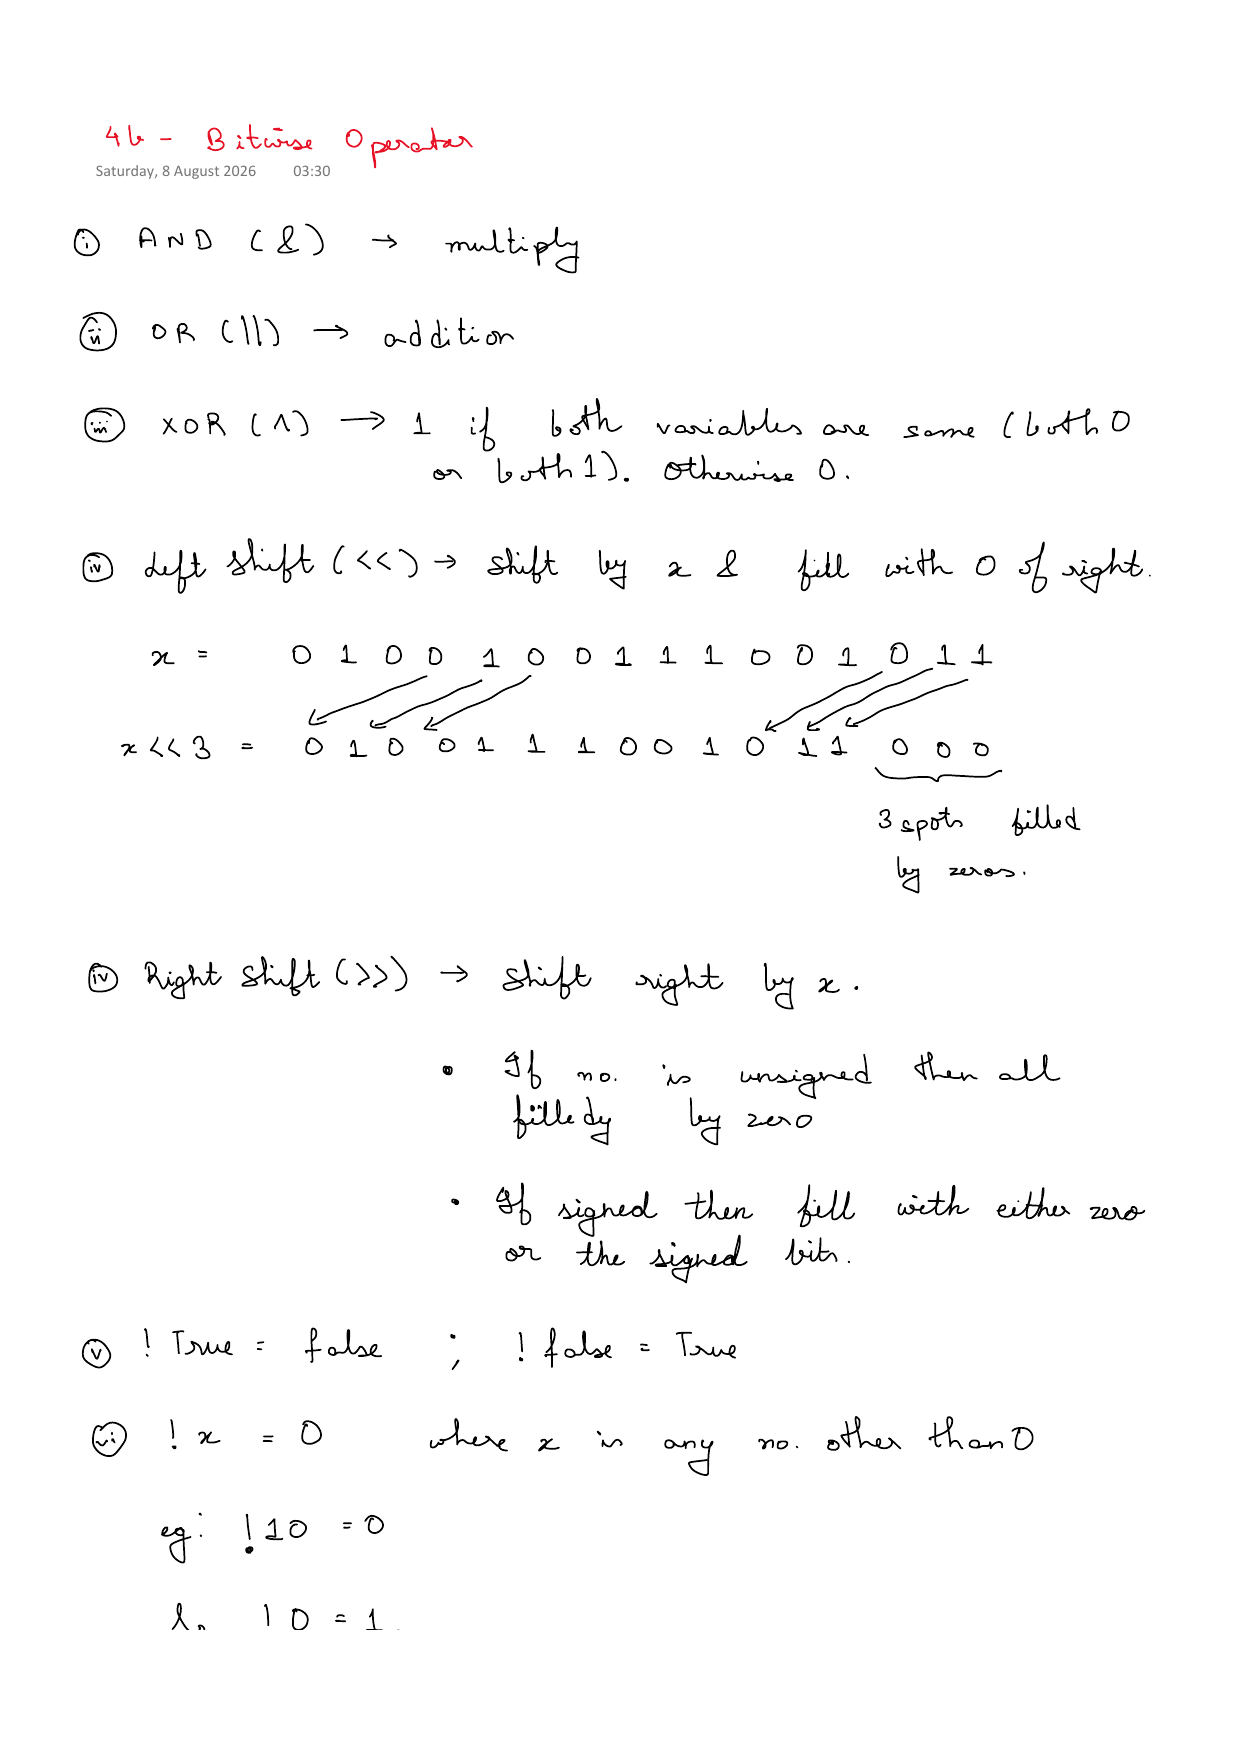 4b - Bitwise Operator
Saturday, 8 August 2026 03:30
(i) AND (&) → multiply
(ii) OR (||) → addition
(iii) XOR (^) → 1 if both variables are same (both 0
or both 1). Otherwise 0.
(iv) Left shift (<<) → shift by x & fill with 0 of right.
x = 0 1 0 0 1 0 0 1 1 1 0 0 1 0 1 1
x<<3 = 0 1 0 0 1 1 1 0 0 1 0 1 1 0 0 0
3 spots filled
by zeros.
(iv) Right shift (>>) → shift right by x.
• If no. is unsigned then all
filledy by zero
• If signed then fill with either zero
or the signed bits.
(v) ! True = false ; ! false = True
(vi) ! x = 0 where x is any no. other than 0
eg: !10 = 0
!0 = 1.